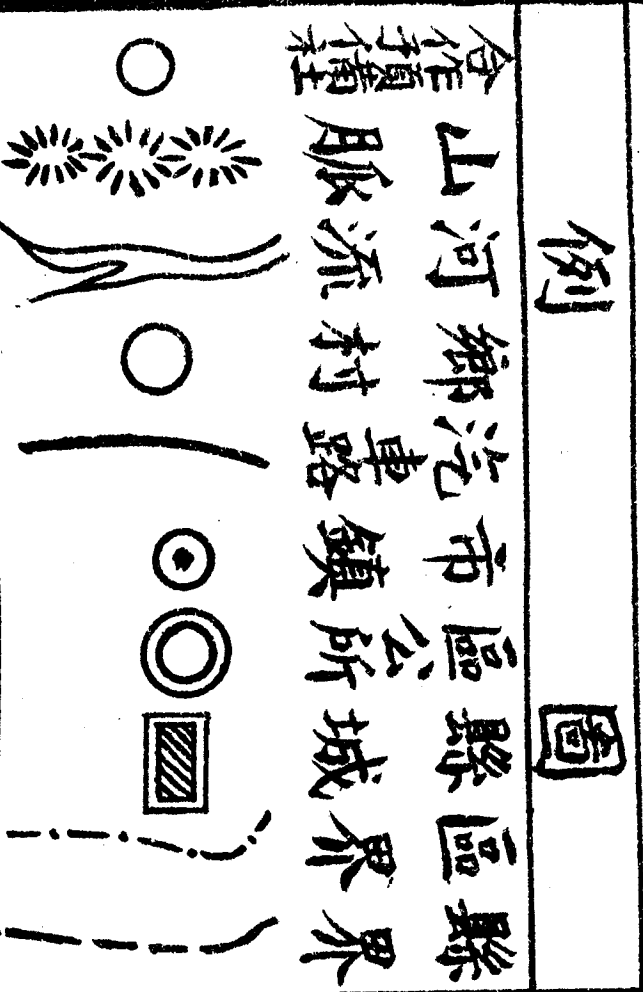 圖例
縣界
區界
縣城
區公所
市鎮
汽車路
鄉村
河流
山脈
合作預備社